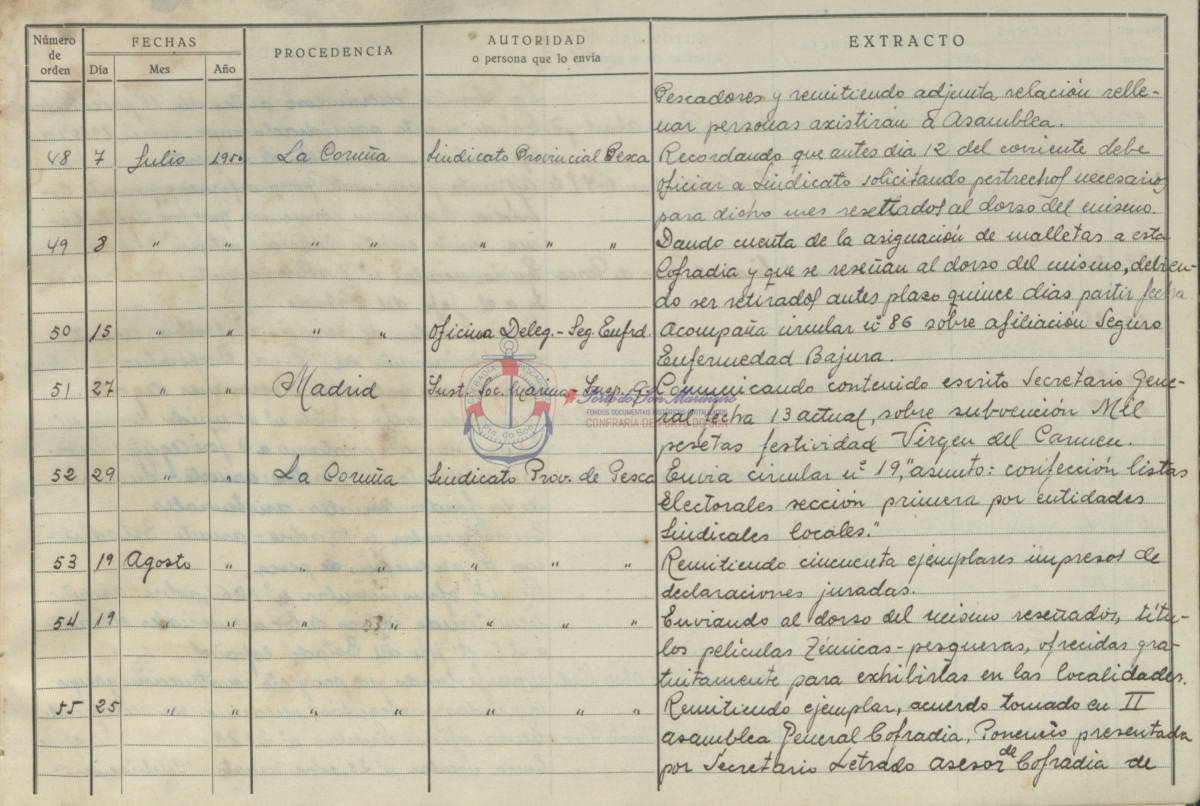 Número de orden FECHAS PROCEDENCIA AUTORIDAD o persona que lo envía EXTRACTO
Día Mes Año
Pescadores y remitiendo adjunta relación relle-
nar personas axistirán a Asamblea.
48 7 Julio 1950 La Coruña Sindicato Provincial Pesca Recordando que antes dia 12 del corriente debe
oficiar a Sindicato solicitando pertrechos necesarios
para dicho mes resettados al dorso del mismo.
49 8 " " " " " " " Dando cuenta de la asignación de malletas a esta
Cofradia y que se reseñan al dorso del mismo, debien-
do ser retirados antes plazo quince dias partir fecha
50 15 " " " " Oficina Deleg.- Seg. Enfrd. Acompaña circular nº 86 sobre afiliación Seguro
Enfermedad Bajura.
51 27 " " Madrid Inst. Soc. Marina- Insp. G. Comunicando contenido escrito Secretario Gene-
ral fecha 13 actual, sobre subvención Mil
pesetas festividad Virgen del Carmen.
Porto do Son Mariñeiro
FONDOS DOCUMENTAIS HISTÓRICOS DIXITALIZADOS
CONFRARÍA DE PORTO DO SON
Pto. do Son
52 29 " " La Coruña Sindicato Prov. de Pesca Envia circular nº 19, "asunto: confección listas
Electorales sección primera por entidades
Sindicales locales."
53 19 Agosto " " " " " " Remitiendo cincuenta ejemplares impresos de
declaraciones juradas.
54 19 " " " " " " " Enviando al dorso del mismo reseñados, títu-
los películas Zécnicas-pesqueras, ofrecidas gra-
tuitamente para exhibirlas en las localidades.
55 25 " " " " " " " Remitiendo ejemplar, acuerdo tomado en II
Asamblea General Cofradia, Ponencia presentada
por Secretario Letrado Asesor de Cofradia de